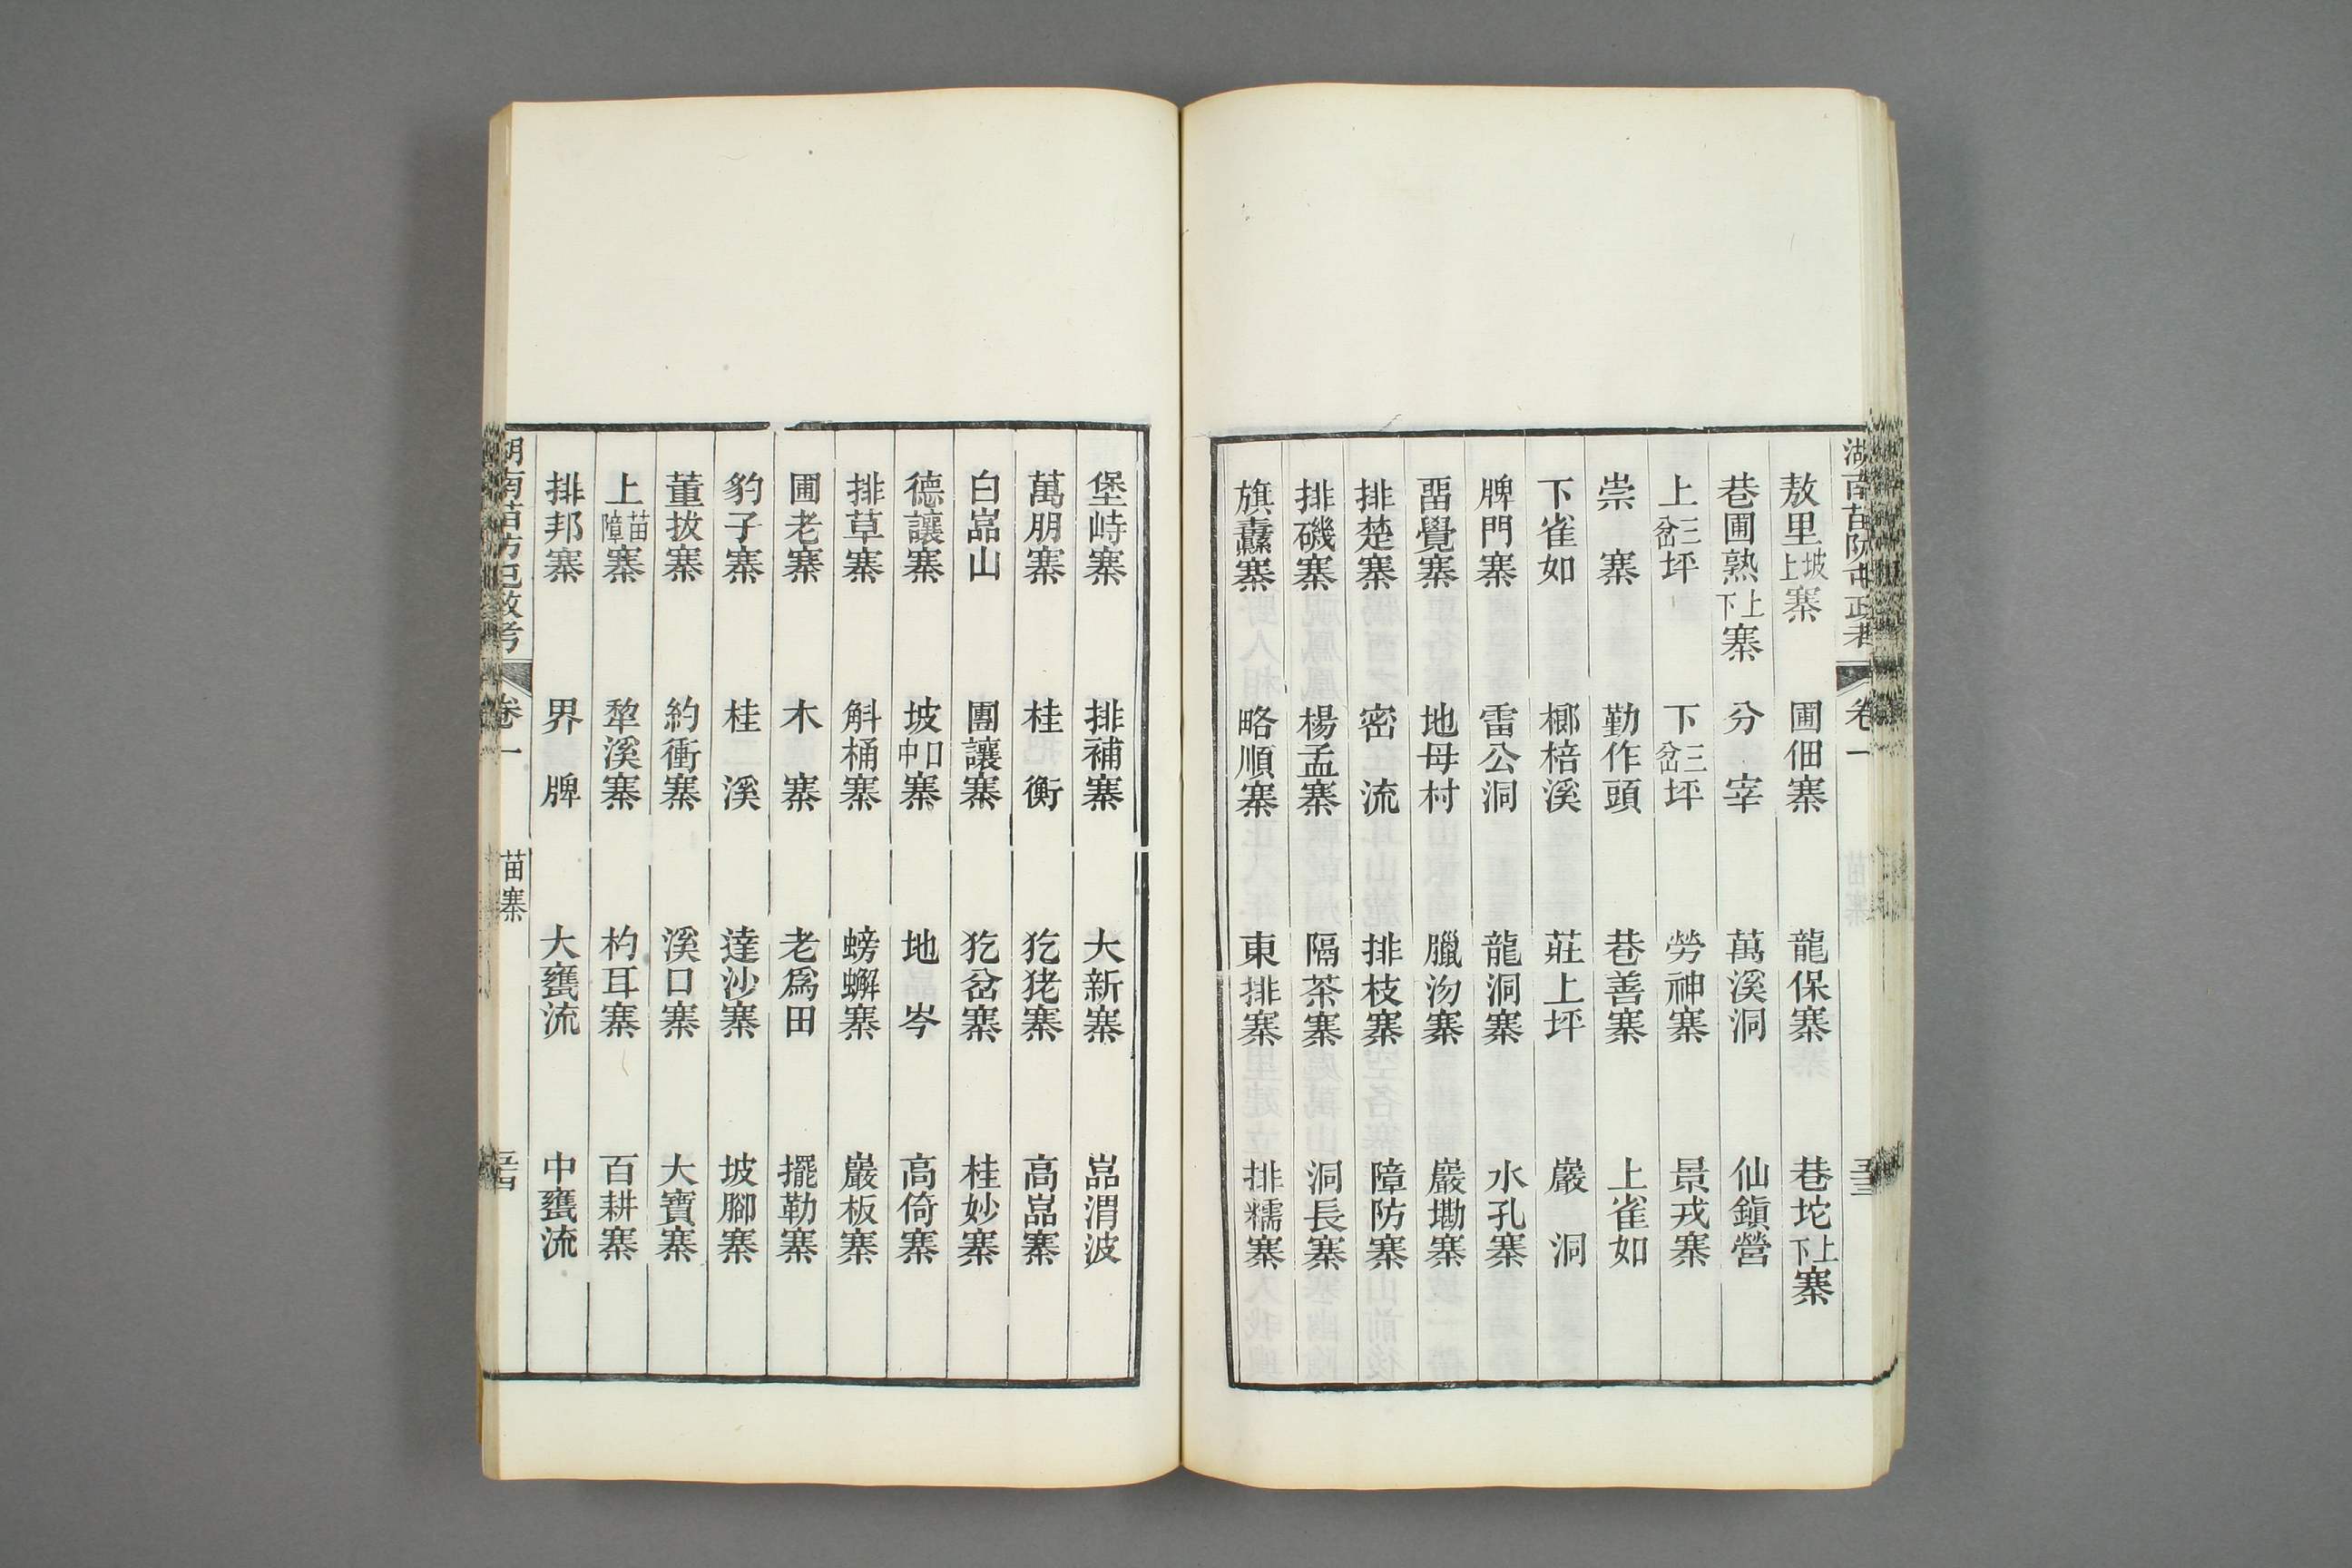 湖南苗防屯政考 卷一
敖里坡上寨 圃佃寨 龍保寨 巷坨上下寨
巷圃熟上下寨 分宰 萬溪洞 仙鎭營
上三岔坪 下三岔坪 勞神寨 景戎寨
崇寨 勤作頭 巷善寨 上雀如
下雀如 榔棓溪 莊上坪 巖洞
牌門寨 雷公洞 龍洞寨 水孔寨
畱覺寨 地母村 臘沕寨 巖㘓寨
排楚寨 密流 排枝寨 障防寨
排磯寨 楊孟寨 隔茶寨 洞長寨
旗纛寨 略順寨 東排寨 排糯寨
堡峙寨 排補寨 大新寨 嵓渭波
萬朋寨 桂衡 犵狫寨 高嵓寨
白嵓山 團讓寨 犵岔寨 桂妙寨
德讓寨 坡口中寨 地岑 高倚寨
排草寨 斛桶寨 螃蠏寨 巖板寨
圃老寨 木寨 老爲田 擺勒寨
豹子寨 桂溪 達沙寨 坡腳寨
董拔寨 約衝寨 溪口寨 大寶寨
上苗障寨 犂溪寨 杓耳寨 百耕寨
排邦寨 界牌 大甕流 中甕流
湖南苗防屯政考 卷一 苗寨